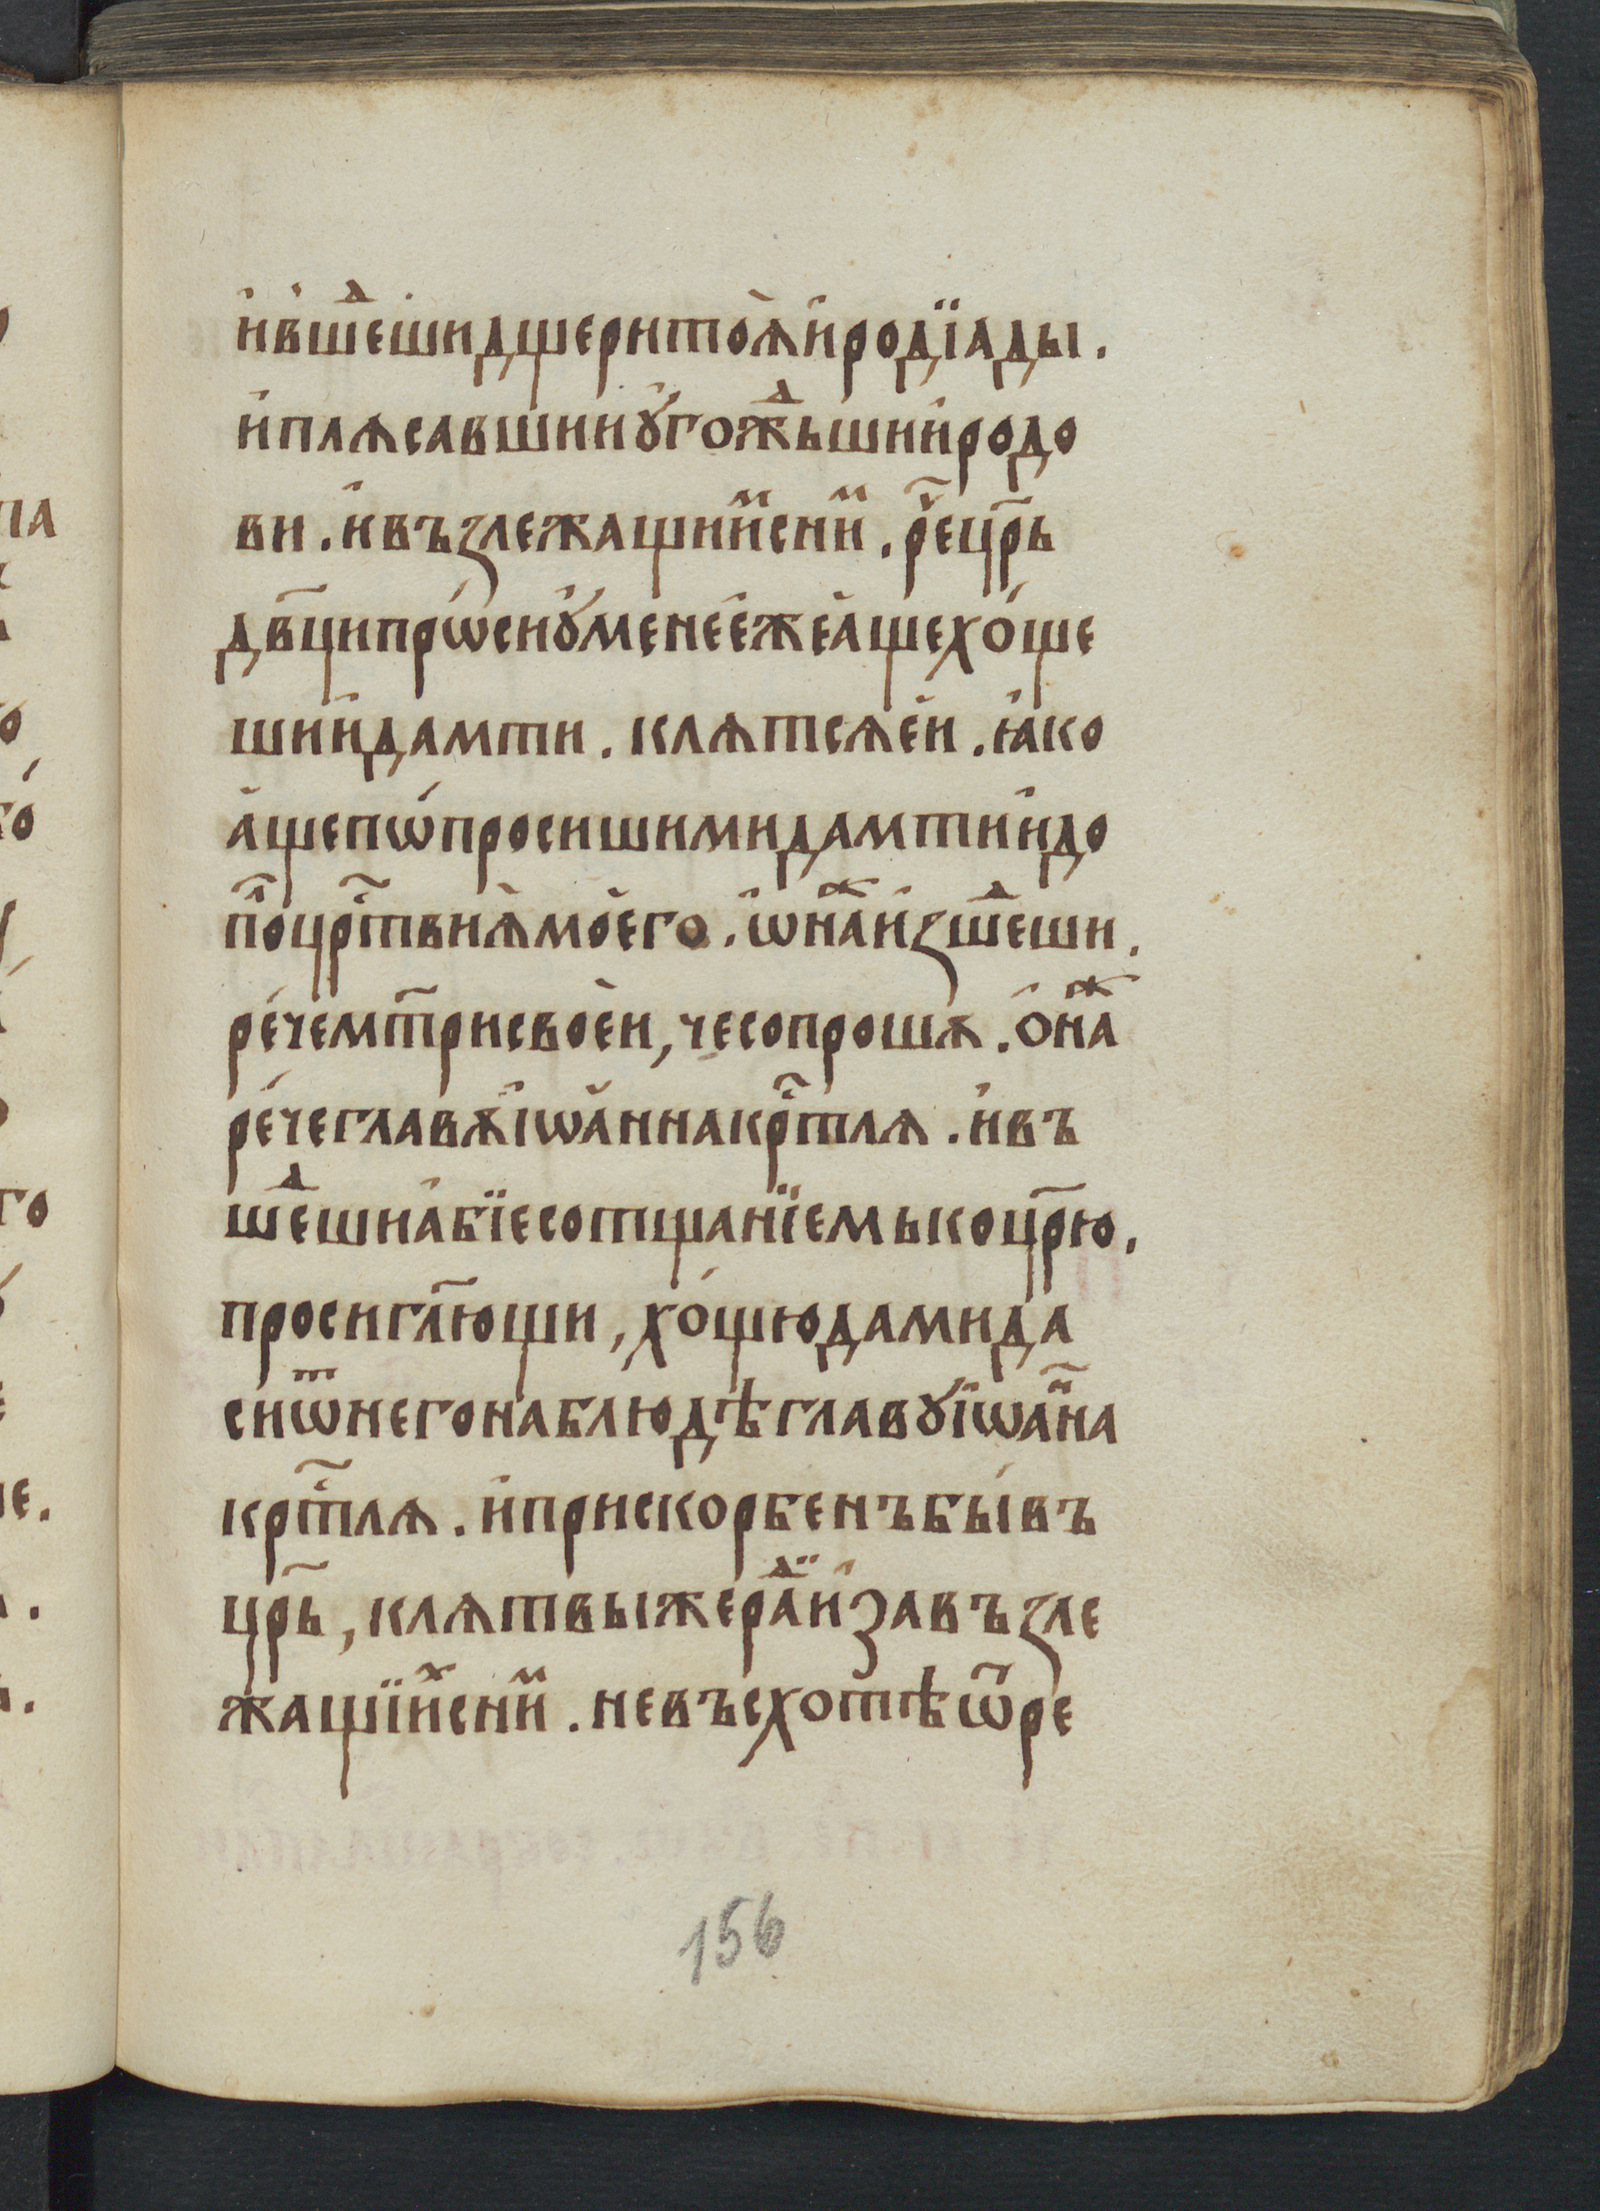 и҆ вше́дши дщери тоѧ̀ и҆родїады .
и҆ плѧсавши и҆ ꙋ҆гождьши и҆родо
ви . и҆ възлежащи́и с ни́м . рⷱ҇е цр҃ь
дв҃ци прѡ́си ꙋ҆ мене є҆же а҆ще хо́ще
ши и҆ дам ти . клѧтсѧ є҆и . ꙗ҆ко
а҆ще пѡ́просиши ми дам ти и҆ до
по́л цр҇твиѧ̀ мо̀его . ѡ҆на́ж и҆зше́дши .
ре́че мт҃ри своѐи , чесо прошѧ . ѻ҆на́ж
ре́че главѧ̀ і҆ѡа҆нна кр҇тлѧ . и҆ въ
ше́дши а҆бїе со тщанїемь ко цр҃ю .
проси гл҃ющи , хо́щю да ми да
си ѿ него на блюдѣ главꙋ і҆ѡа҆нна
кр҇тлѧ . и҆ прискорбенъ бы́въ
цр҃ь , клѧтвы же ра́ди и҆ за възле
жащїи́х с ни́м . не въсхотѣ ѿре
156